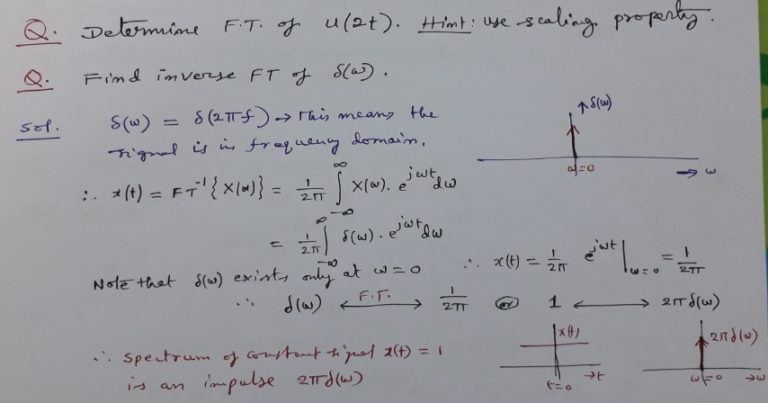 Q. Determine F.T. of u(2t). Hint: use scaling property.
Q. Find inverse FT of δ(ω).
Sol. δ(ω) = δ(2πf) → This means the
signal is in frequency domain.
↑δ(ω)
ω=0
→ ω
∴ x(t) = FT⁻¹{X(ω)} = 1/2π ∫_{-∞}^{∞} X(ω). e^{jωt} dω
= 1/2π ∫_{-∞}^{∞} δ(ω). e^{jωt} dω
Note that δ(ω) exists only at ω=0 ∴ x(t) = 1/2π e^{jωt}|_{ω=0} = 1/2π
∴ δ(ω) ←F.T.→ 1/2π or 1 ←→ 2πδ(ω)
∴ Spectrum of constant signal x(t) = 1
is an impulse 2πδ(ω)
x(t)
t=0
→t
2πδ(ω)
ω=0
→ω